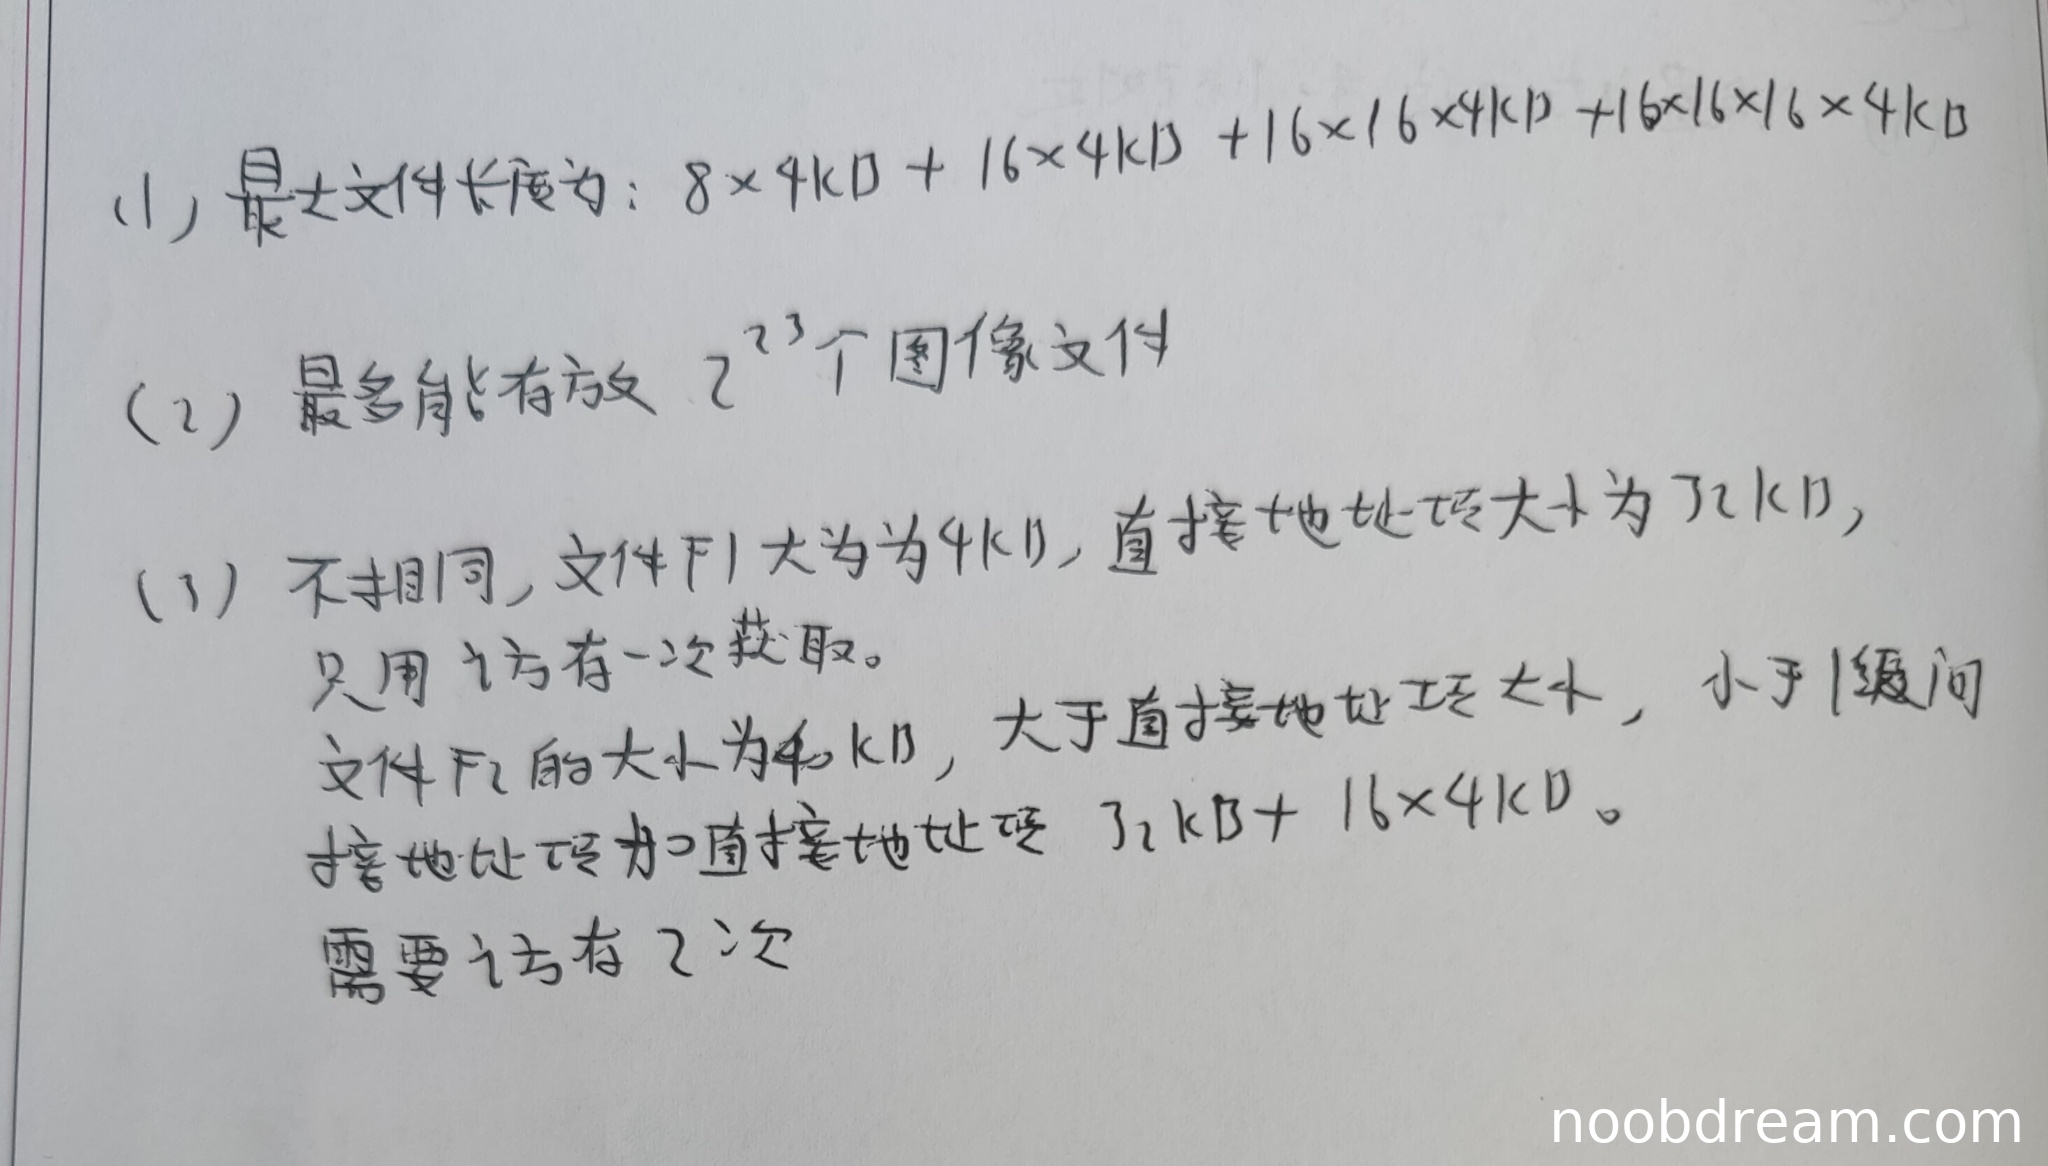 (1) 最大文件长度为: 8×4KB + 16×4KB +16×16×4KB +16×16×16×4KB
(2) 最多能存放 2^23个图像文件
(3) 不相同, 文件F1大为为4KB, 直接地址项大小为32KB,
只用访存一次获取。
文件F2的大小为40KB, 大于直接地址项大小, 小于1级间
接地址项加直接地址项 32KB+ 16×4KB。
需要访存2次
noobdream.com